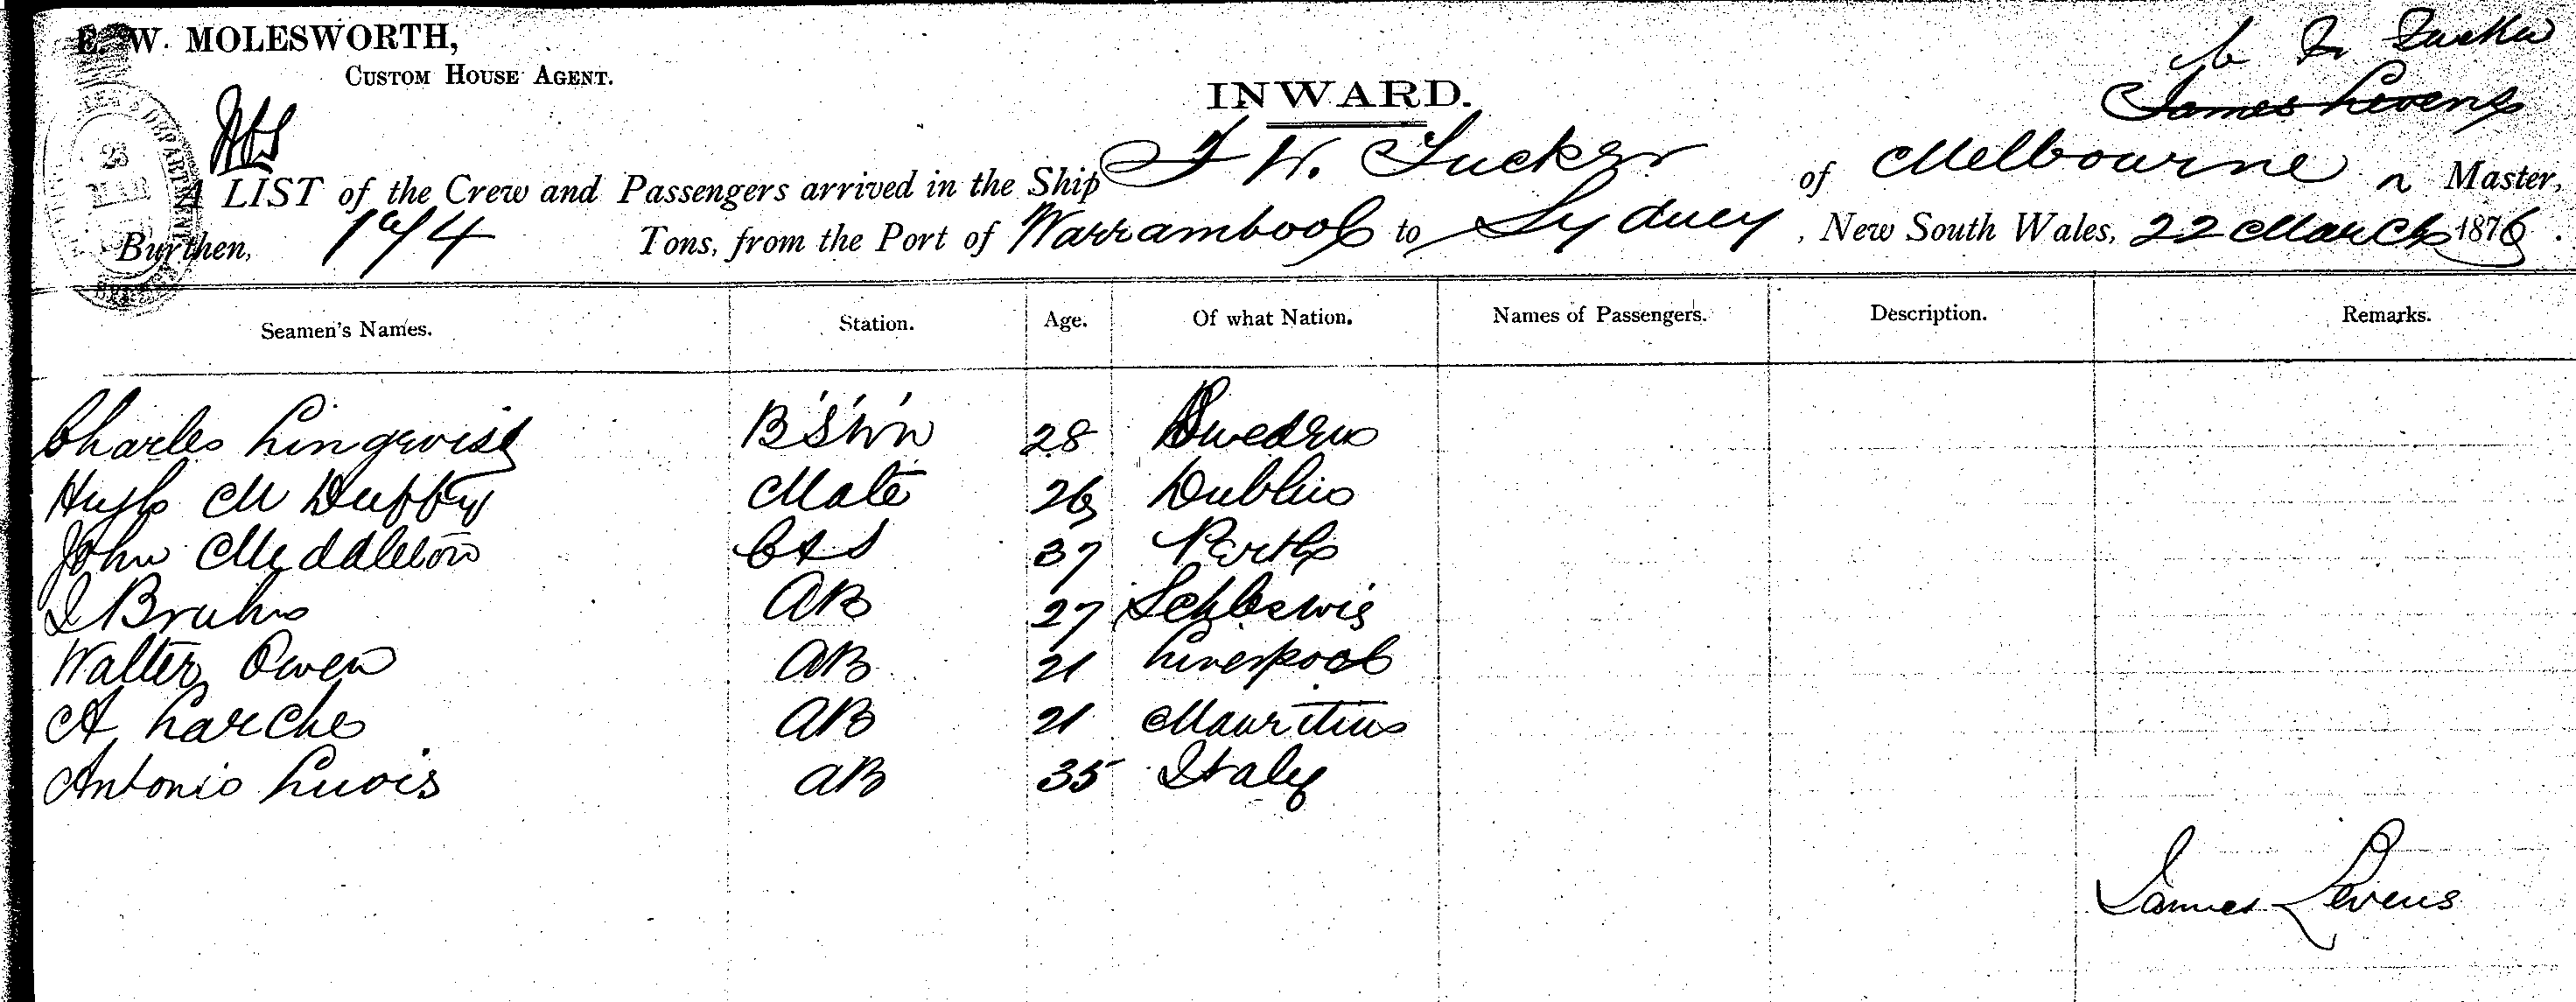 E. W. MOLESWORTH,
CUSTOM HOUSE AGENT.
INWARD.
James Levens
A LIST of the Crew and Passengers arrived in the Ship F W. Tucker of Melbourne Master,
Burthen, Tons, from the Port of Warrambool to Sydney, New South Wales, 22 March 1876.
Seamen's Names. Station. Age. Of what Nation. Names of Passengers. Description. Remarks.
Charles Lingwist B'S'W'n 28 Sweden
Hugh M Duffy Mate 26 Dublin
John Middleton C & S 37 Perth
Bruhn AB 27 Schleswig
Walter Owen AB 21 Liverpool
A Larche AB 21 Mauritius
Antonio Luois AB 35 Italy
James Levens